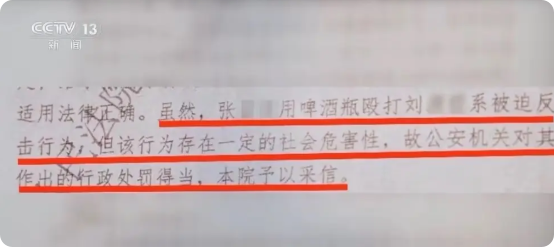 CCTV 13
新闻
适用法律正确。虽然，张 用啤酒瓶殴打刘 系被迫反
击行为，但该行为存在一定的社会危害性，故公安机关对其
作出的行政处罚得当，本院予以采信。